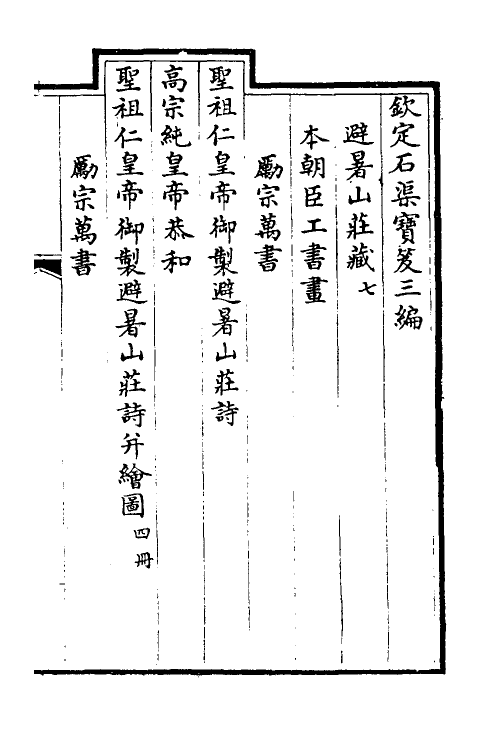 欽定石渠寶笈三編
避暑山莊藏七
本朝臣工書畫
勵宗萬書
聖祖仁皇帝御製避暑山莊詩
高宗純皇帝恭和
聖祖仁皇帝御製避暑山莊詩并繪圖四冊
勵宗萬書